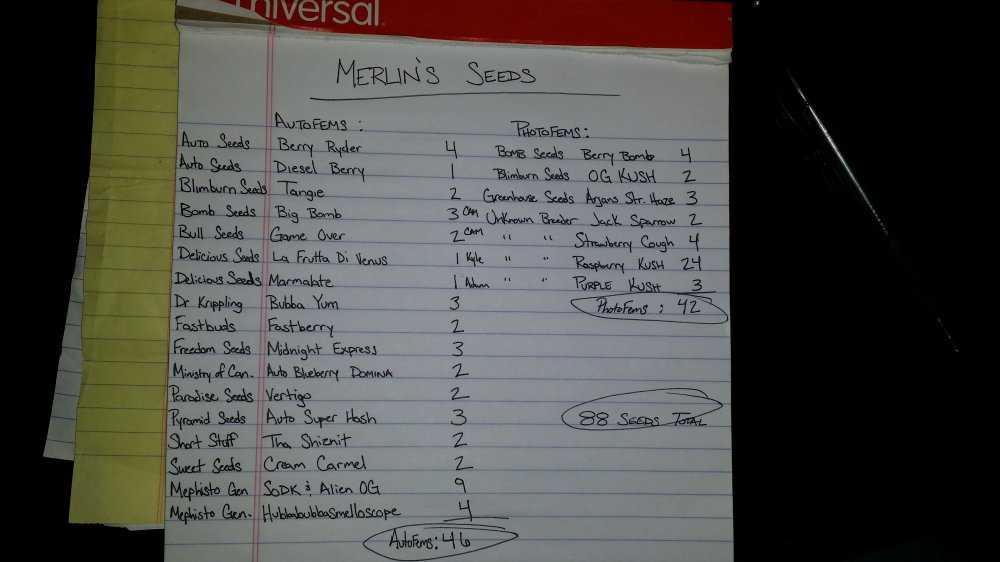 niversal
MERLIN'S SEEDS
AUTOFEMS:
Auto Seeds Berry Ryder 4
Auto Seeds Diesel Berry 1
Blimburn Seeds Tangie 2
Bomb Seeds Big Bomb 3 CAM
Bull Seeds Game Over 2 CAM
Delicious Seeds La Frutta Di Venus 1 Kyle
Delicious Seeds Marmalate 1 Adam
Dr Krippling Bubba Yum 3
Fastbuds Fastberry 2
Freedom Seeds Midnight Express 3
Ministry of Can. Auto Blueberry DOMINA 2
Paradise Seeds Vertigo 2
Pyramid Seeds Auto Super Hash 3
Short Stuff Tha Shiznit 2
Sweet Seeds Cream Carmel 2
Mephisto Gen SODK & Alien OG 9
Mephisto Gen. Hubbabubbasmelloscope 4
AutoFems: 46
PHOTOFEMS:
BOMB Seeds Berry Bomb 4
Blimburn Seeds OG KUSH 2
Greenhouse Seeds Arjans Str. Haze 3
Unknown Breeder Jack Sparrow 2
" " Strawberry Cough 4
" " Raspberry KUSH 24
" " PURPLE KUSH 3
PhotoFems: 42
88 SEEDS TOTAL